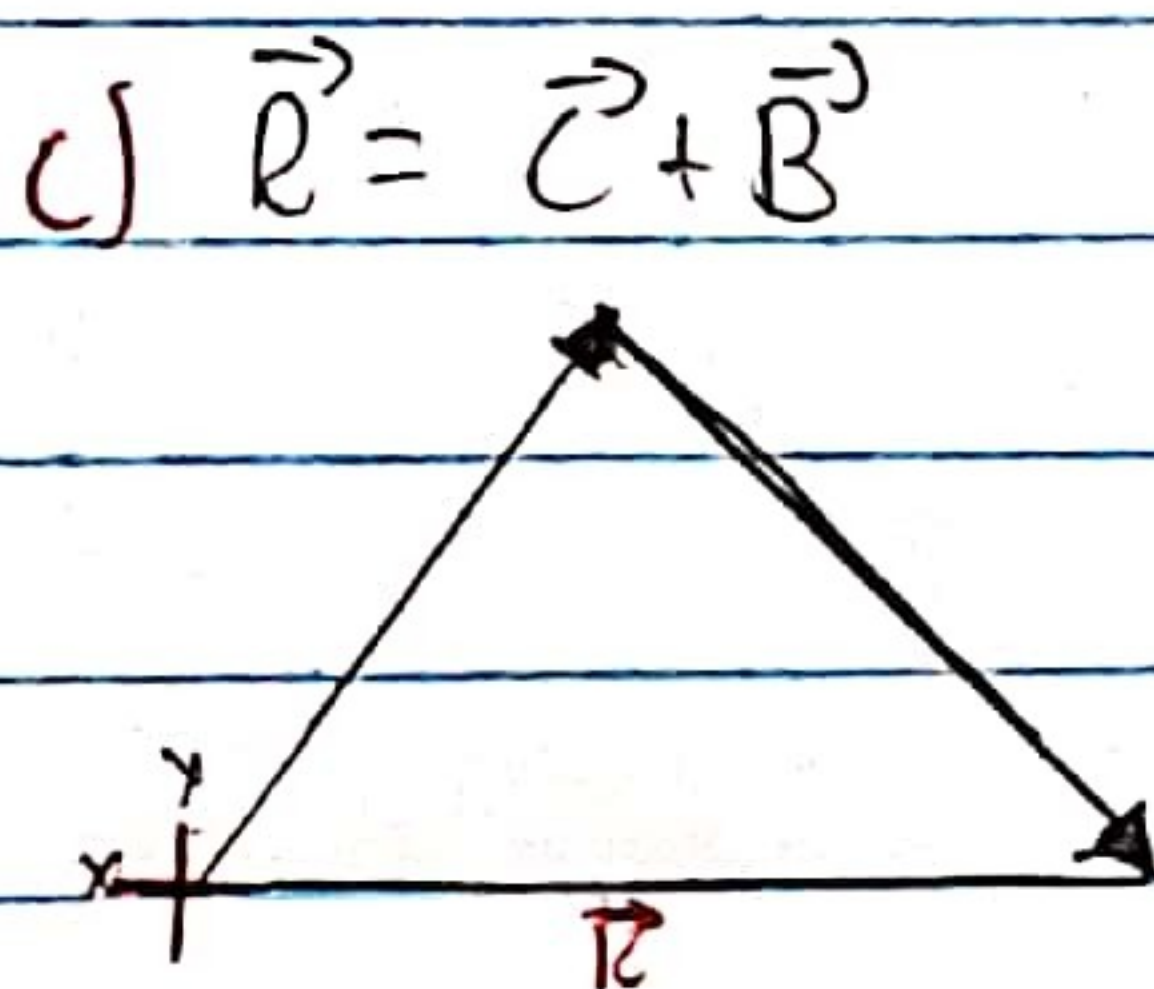 c) R⃗ = C⃗ + B⃗
y
x
R⃗